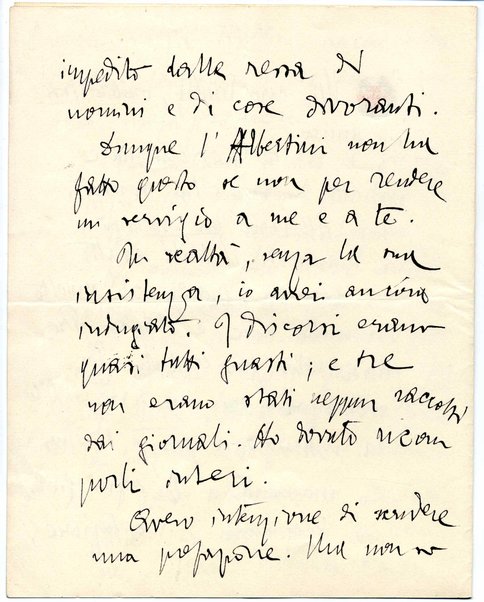 impedito dalla ressa di
uomini e di cose divoranti.
Dunque l'Albertini non ha
fatto questo se non per rendere
un servigio a me e a te.
In realtà, senza la sua
insistenza, io avrei ancóra
indugiato. I discorsi erano
quasi tutti guasti; e tre
non erano stati neppur raccolti
dai giornali. Ho dovuto ricom
porli interi.
Avevo intenzione di
una prefazione. Ma non